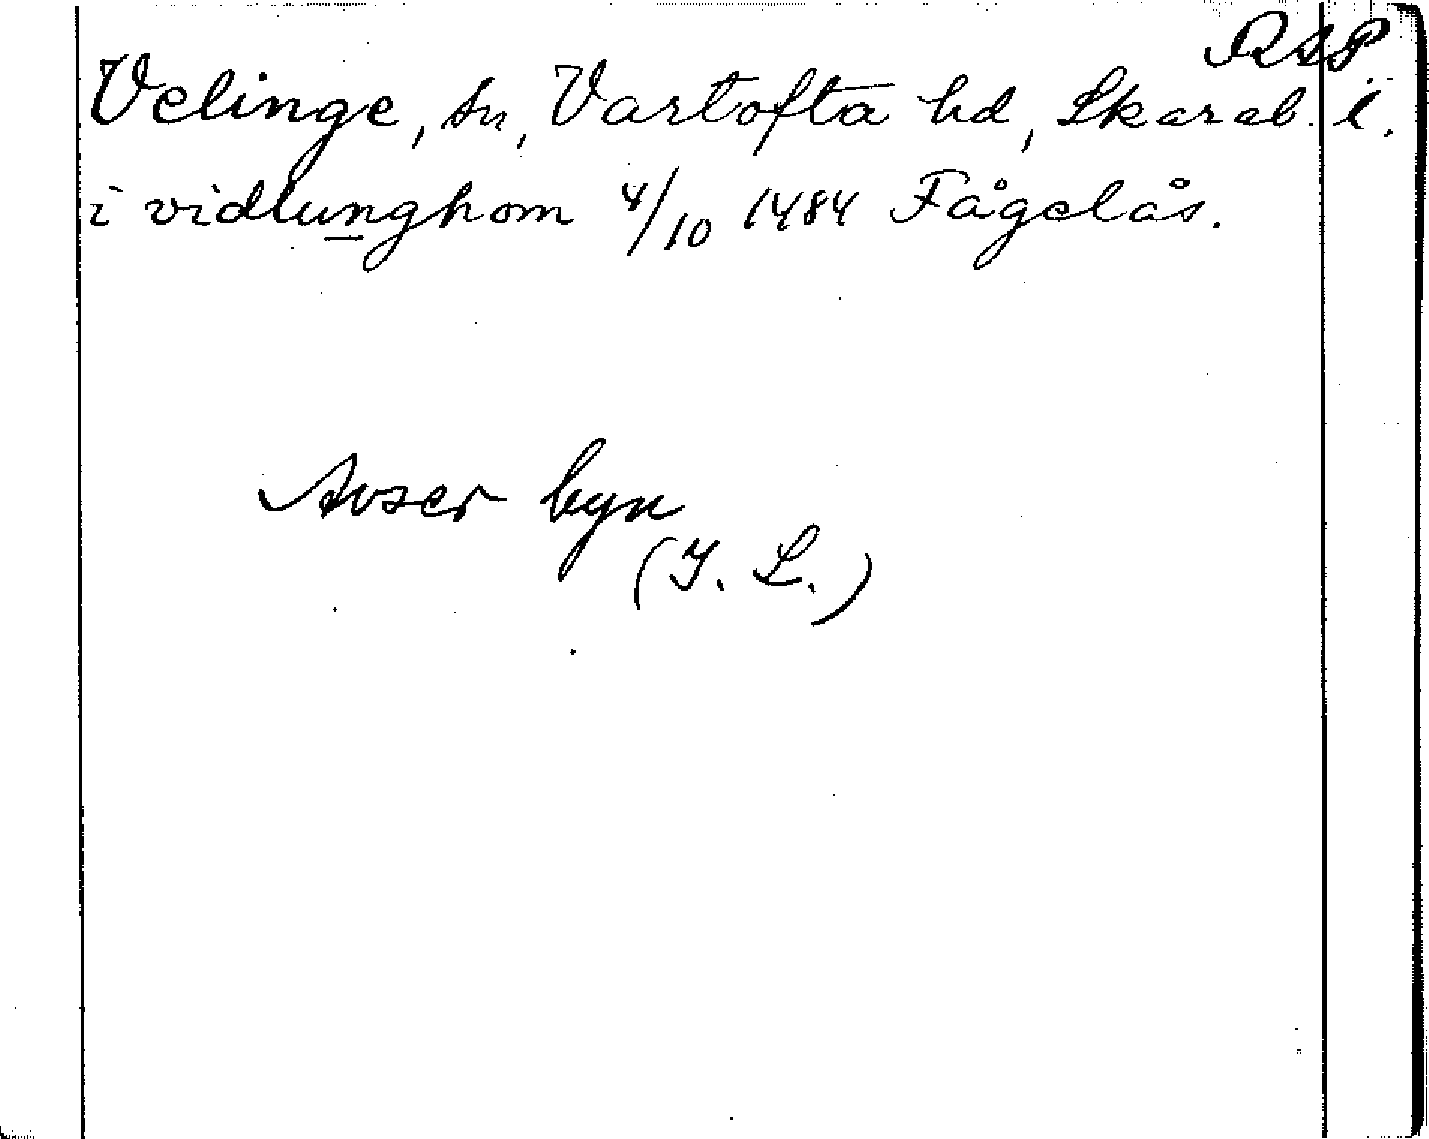 RAP
Velinge, sn, Vartofta hd, Skarab. l.
i vidlunghom 4/10 1484 Fågelås.
Avser byn
(I. L.)